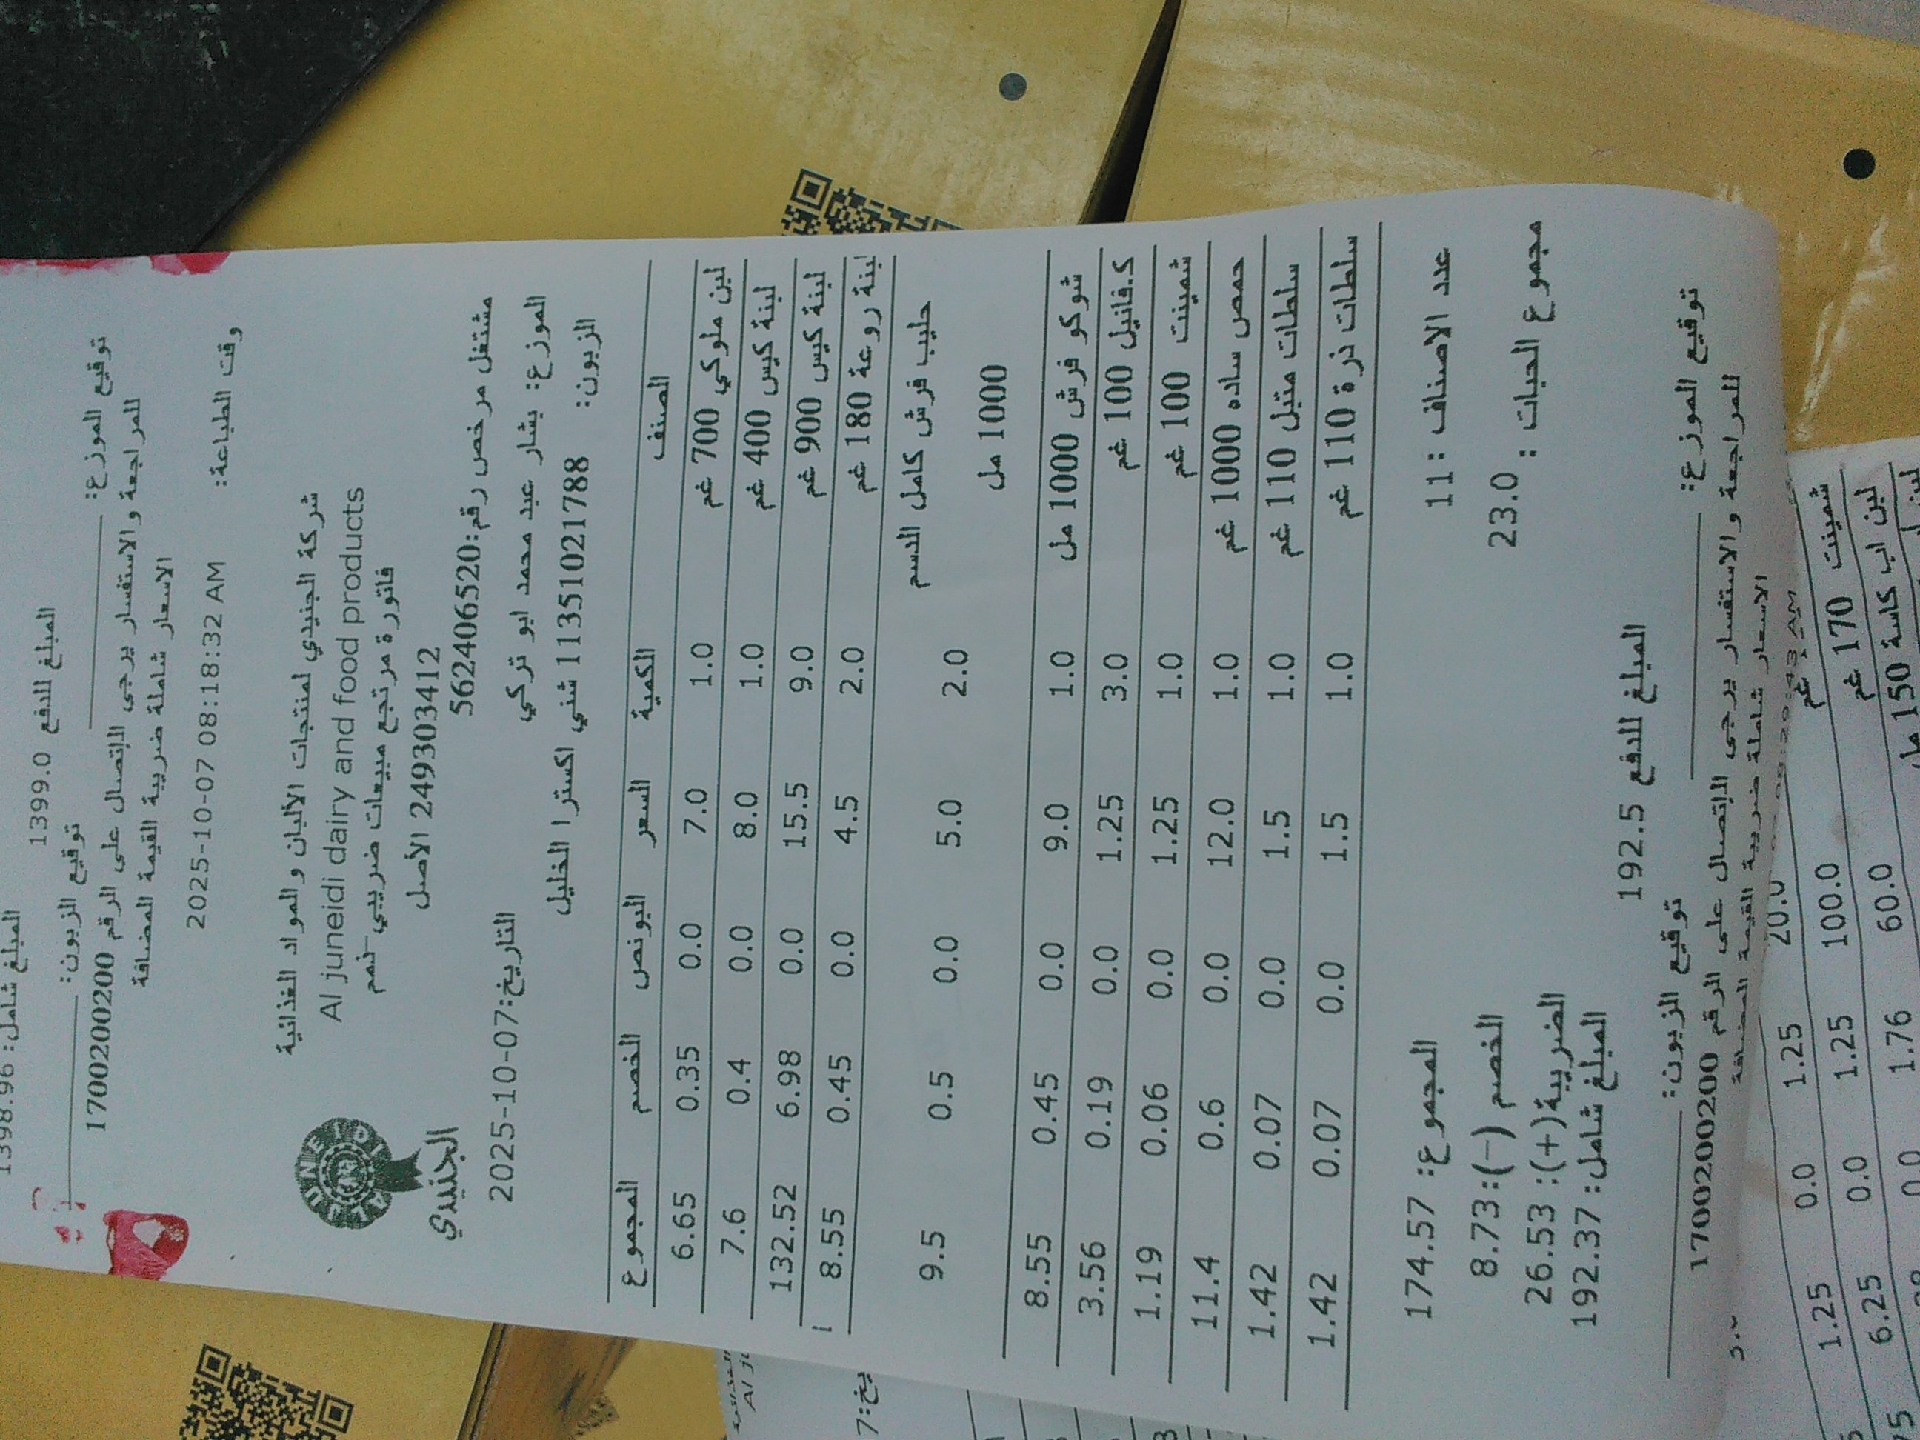 المبلغ شامل: 1398.96
المبلغ للدفع 1399.0
توقيع الموزع: توقيع الزبون:
للمراجعة والاستفسار يرجى الاتصال على الرقم 1700200200
الاسعار شاملة ضريبة القيمة المضافة
وقت الطباعة: 2025-10-07 08:18:32 AM
شركة الجنيدي لمنتجات الألبان والمواد الغذائية
Al juneidi dairy and food products
فاتورة مرتجع مبيعات ضريبي-نعم
249303412 الأصل
AL JUNEIDI
الجنيدي
مشتغل مرخص رقم:562406520
الموزع: بشار عبد محمد ابو تركي
التاريخ:2025-10-07
الزبون: 11351021788 شني اكسترا الخليل
الصنف الكمية السعر البونص الخصم المجموع
لبن ملوكي 700 غم 1.0 7.0 0.0 0.35 6.65
لبنة كيس 400 غم 1.0 8.0 0.0 0.4 7.6
لبنة كيس 900 غم 9.0 15.5 0.0 6.98 132.52
لبنة روعة 180 غم 2.0 4.5 0.0 0.45 8.55
حليب فرش كامل الدسم
1000 مل 2.0 5.0 0.0 0.5 9.5
شوكو فرش 1000 مل 1.0 9.0 0.0 0.45 8.55
ك.فانيل 100 غم 3.0 1.25 0.0 0.19 3.56
شمينت 100 غم 1.0 1.25 0.0 0.06 1.19
حمص ساده 1000 غم 1.0 12.0 0.0 0.6 11.4
سلطات متبل 110 غم 1.0 1.5 0.0 0.07 1.42
سلطات ذرة 110 غم 1.0 1.5 0.0 0.07 1.42
عدد الاصناف : 11 المجموع: 174.57
مجموع الحبات : 23.0 الخصم (-):8.73
الضريبة(+): 26.53
المبلغ شامل: 192.37
المبلغ للدفع 192.5
توقيع الموزع: توقيع الزبون:
للمراجعة والاستفسار يرجى الاتصال على الرقم 1700200200
الاسعار شاملة ضريبة القيمة المضافة
غم 20.0 1.25 0.0 1.25
شمينت 170 غم 100.0 1.25 0.0 6.25
لبن اب كاسة 150 مل 60.0 1.76 0.0